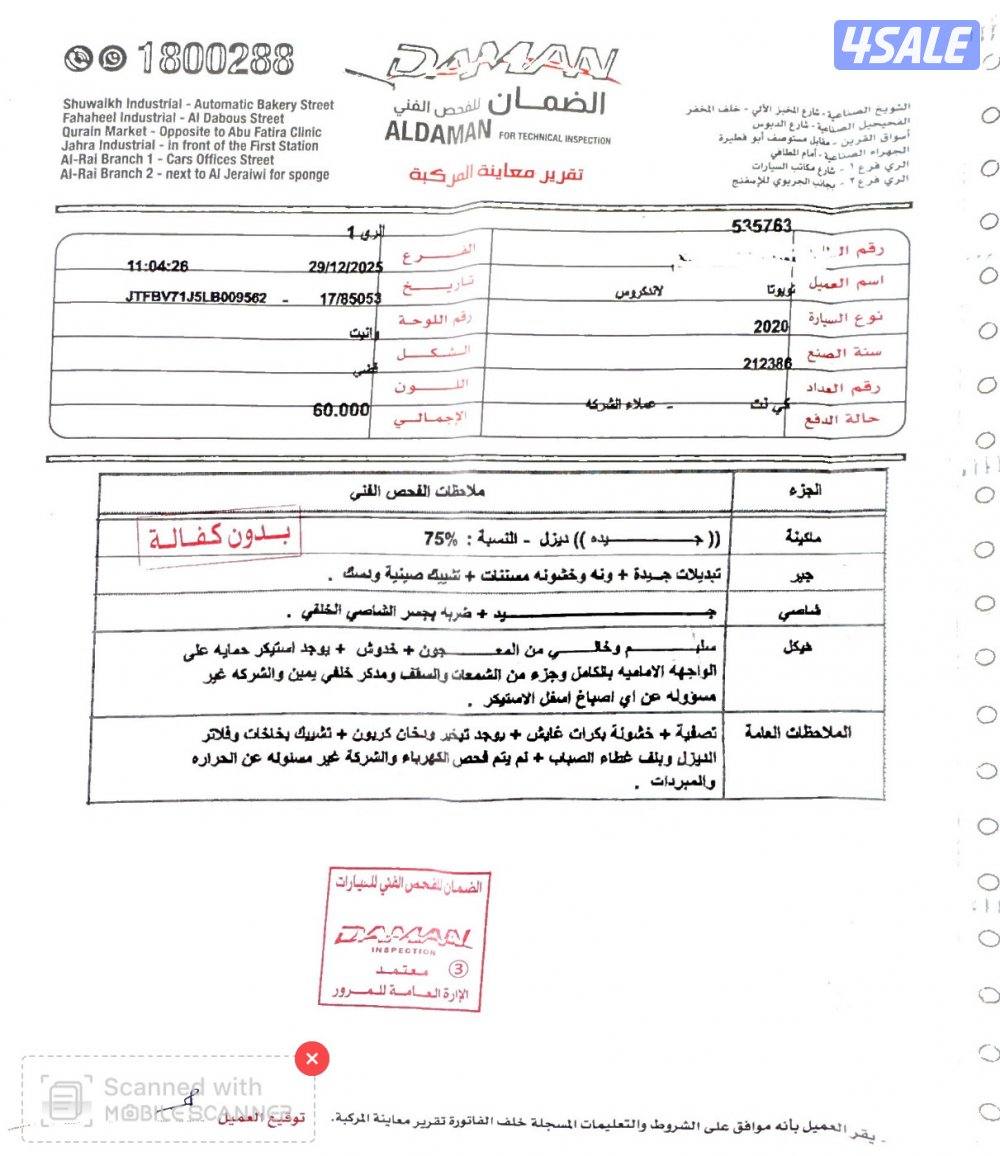 4SALE
1800288
DAMAN
الضمان للفحص الفني
ALDAMAN FOR TECHNICAL INSPECTION
تقرير معاينة المركبة
Shuwaikh Industrial - Automatic Bakery Street
Fahaheel Industrial - Al Dabous Street
Qurain Market - Opposite to Abu Fatira Clinic
Jahra Industrial - in front of the First Station
Al-Rai Branch 1 - Cars Offices Street
Al-Rai Branch 2 - next to Al Jeraiwi for sponge
الشويخ الصناعية - شارع المخبز الآلي - خلف المخفر
الفحيحيل الصناعية - شارع الدبوس
أسواق القرين - مقابل مستوصف أبو فطيرة
الجهراء الصناعية - أمام المطافي
الري فرع ١ - شارع مكاتب السيارات
الري فرع ٢ - بجانب الجريوي للإسفنج
رقم 535763
الفرع الرى 1
اسم العميل
تاريخ 29/12/2025 11:04:26
نوع السيارة تويوتا لاندكروس
رقم اللوحة 17/85053 - JTFBV71J5LB009562
سنة الصنع 2020
الشكل وانيت
رقم العداد 212386
اللون فضي
حالة الدفع كي نت - عملاء الشركه
الإجمالي 60.000
الجزء ملاحظات الفحص الفني
ماكينة (( جيده )) ديزل - النسبة : 75%
بدون كفالة
جير تبديلات جيدة + ونه وخشونه مسننات + تشييك صينية ودسك .
شاصي جيد + ضربه بجسر الشاصي الخلفي .
هيكل سليم وخالي من المعجون + خدوش + يوجد استيكر حمايه على
الواجهه الاماميه بالكامل وجزء من الشمعات والسقف ومدكر خلفي يمين والشركه غير
مسؤوله عن اي اصباغ اسفل الاستيكر .
الملاحظات العامة تصفية + خشونة بكرات غايش + يوجد تبخير ودخان كربون + تشييك بخاخات وفلاتر
الديزل وبلف غطاء الصباب + لم يتم فحص الكهرباء والشركة غير مسئوله عن الحراره
والمبردات .
الضمان للفحص الفني للسيارات
DAMAN
INSPECTION
معتمد 3
الإرة العامة للمرور
Scanned with
MOBILE SCANNER
يقر العميل بأنه موافق على الشروط والتعليمات المسجلة خلف الفاتورة تقرير معاينة المركبة.
توقيع العميل